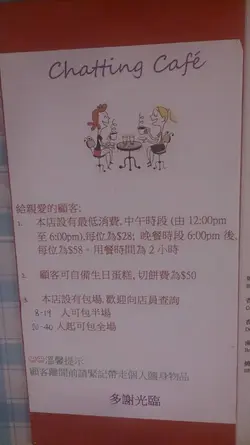 Chatting Café
給親愛的顧客:
1. 本店設有最低消費,中午時段 (由 12:00pm
至 6:00pm),每位為$28; 晚餐時段 6:00pm 後,
每位為$58。用餐時間為 2 小時
2. 顧客可自備生日蛋糕, 切餅費為$50
3. 本店設有包場, 歡迎向店員查詢
人可包半場
20-40 人起可包全場
溫馨提示
顧客離開前請緊記帶走個人隨身物品
多謝光臨